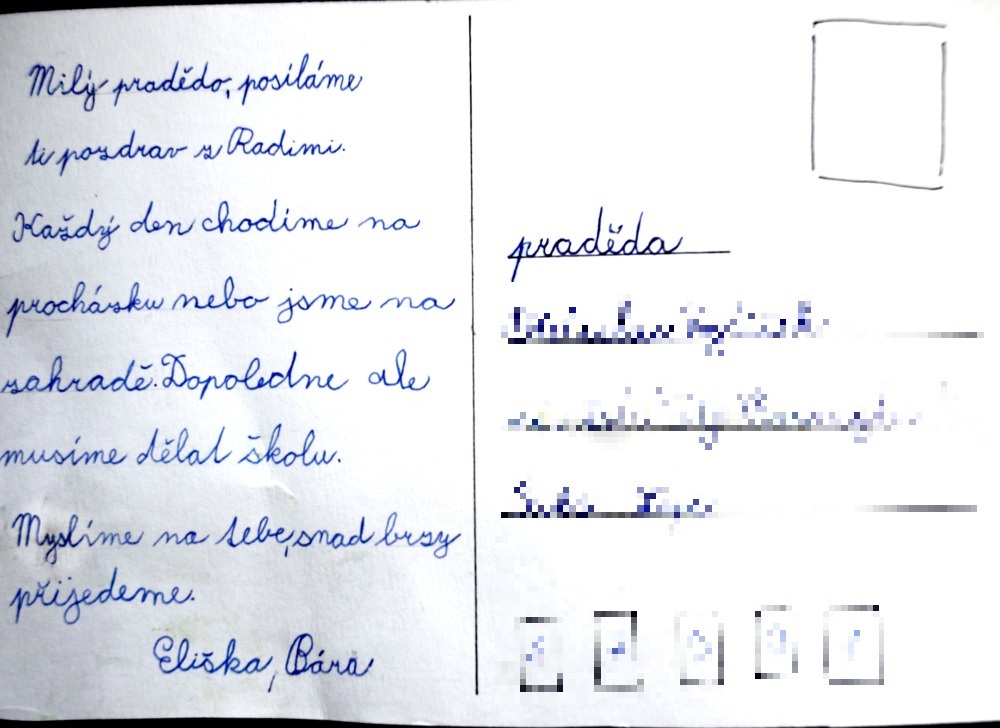 Milý pradědo, posíláme
ti pozdrav z Radimi.
Každý den chodíme na
procházku nebo jsme na
zahradě. Dopoledne ale
musíme dělat školu.
Myslíme na tebe, snad brzy
přijedeme.
Eliška, Bára
praděda